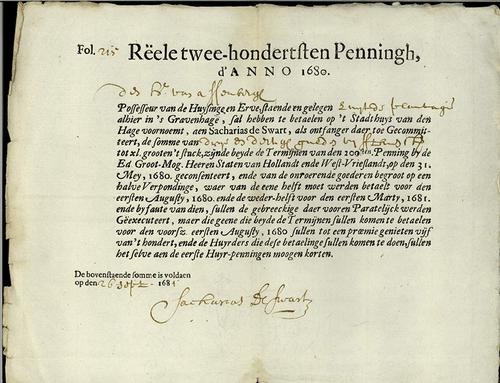 Fol. 215 Rëele twee-hondertsten Penningh,
d'ANNO 1680.
Possesseur van de Huysinge en Erve, staende en gelegen
alhier in 's Gravenhage, sal hebben te betaelen op 't Stadthuys van den
Hage voornoemt, aen Sacharias de Swart, als ontfanger daer toe Gecommit-
teert, de somme van
tot xl. grooten 't stuck, zijnde beyde de Termijnen van den 200sten. Penning by de
Ed. Groot-Mog. Heeren Staten van Hollandt ende West-Vrieslandt, op den 21.
Mey, 1680. geconsenteert, ende van de onroerende goederen begroot op een
halve Verpondinge, waer van de eene helft moet werden betaelt voor den
eersten Augusty, 1680. ende de weder-helft voor den eersten Marty, 1681.
ende by faute van dien, sullen de gebreeckige daer vooren Paratelijck werden
Geëxecuteert, maer die geene die beyde de Termijnen sullen komen te betaelen
voor den voorsz. eersten Augusty, 1680 sullen tot een præmie genieten vijf
van 't hondert, ende de Huyrders die dese betaelinge sullen komen te doen, sullen
het selve aen de eerste Huyr-penningen moogen korten.
De bovenstaende somme is voldaen
op den 26 sept. 1681
Sacharias De Swart